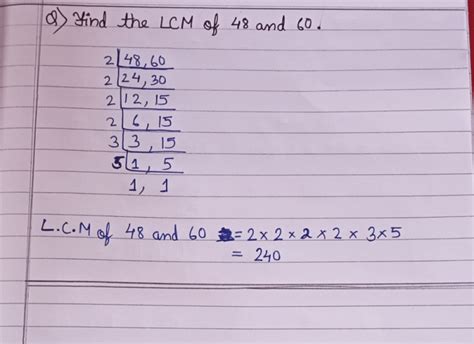 Q) Find the LCM of 48 and 60.
2 48, 60
2 24, 30
2 12, 15
2 6, 15
3 3, 15
5 1, 5
1, 1
L.C.M of 48 and 60 = 2 × 2 × 2 × 2 × 3 × 5
= 240